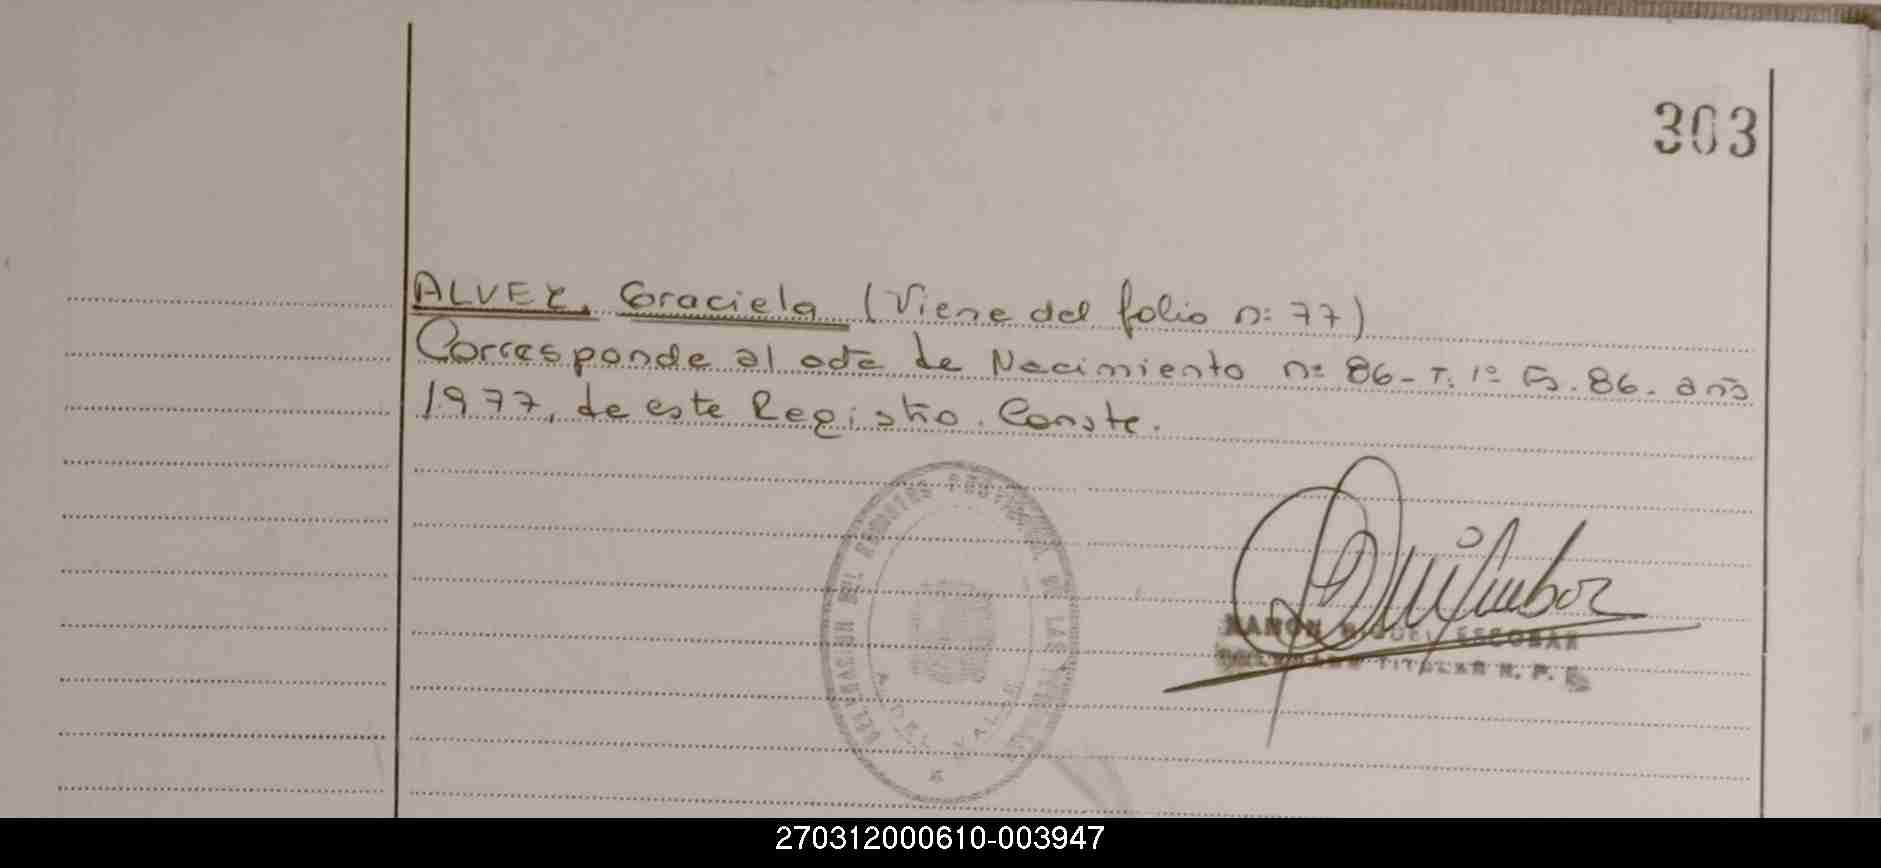 303
ALVEZ, Graciela (Viene del folio nº 77)
Corresponde al acta de Nacimiento nº 86- T. 1º Fº. 86. año
1977, de este Registro. Conste.
RAMON MIGUEL ESCOBAR
TITULAR R. P.
270312000610-003947